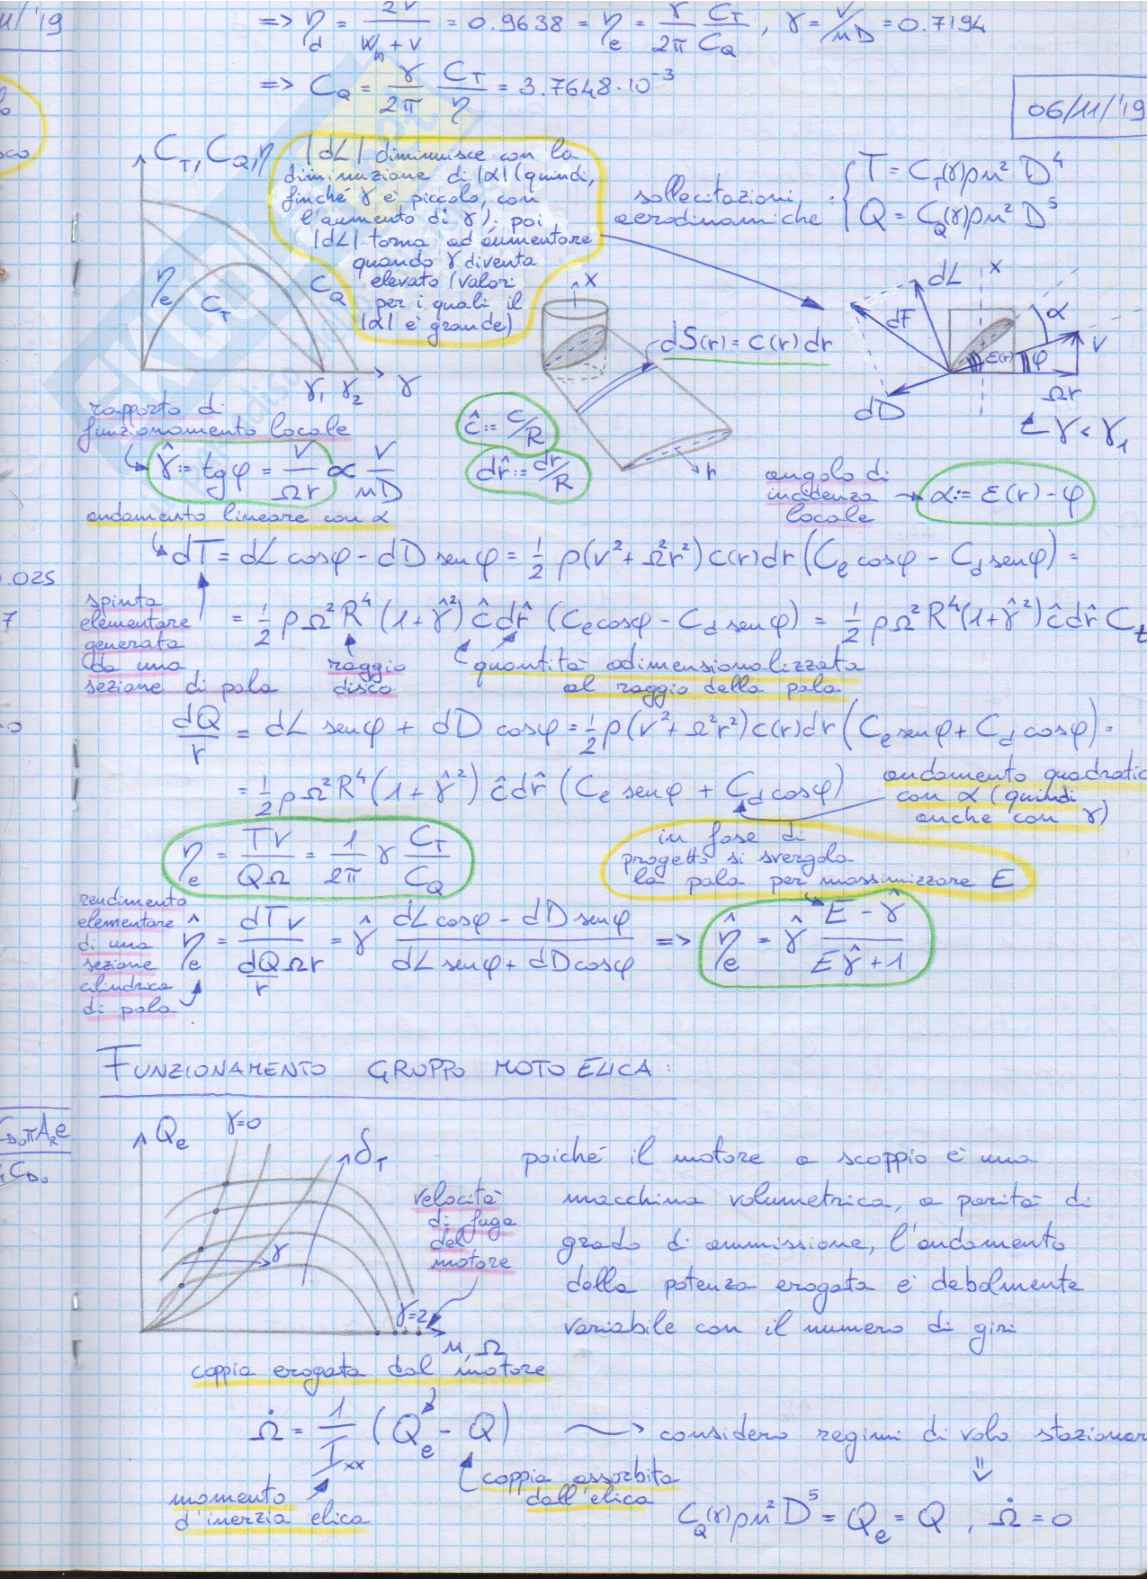 11/'19
=> η_d = 2V / (W_n + V) = 0.9638 = η_e = γ/2π C_T/C_Q , γ = V/nD = 0.7194
=> C_Q = γ/2π C_T/η = 3.7648·10⁻³
06/11/'19
C_T, C_Q, η
|dL| diminuisce con la
diminuzione di |α| (quindi,
finché γ è piccolo, con
l'aumento di γ); poi
|dL| torna ad aumentare
quando γ diventa
elevato (valori
per i quali il
|α| è grande)
sollecitazioni
aerodinamiche
T = C_T(γ)ρn² D⁴
Q = C_Q(γ)ρn² D⁵
η_e
C_T
C_Q
γ₁ γ₂ γ
x
dS(r) = c(r) dr
r
dL
x
dF
α
ε(r)
φ
V
Ωr
dD
γ < γ₁
rapporto di
funzionamento locale
γ̂ := tgφ = V/Ωr ∝ V/nD
ĉ := c/R
dr̂ := dr/R
angolo di
incidenza
locale
α := ε(r) - φ
andamento lineare con α
dT = dL cosφ - dD senφ = 1/2 ρ(V² + Ω²r²) c(r)dr (C_l cosφ - C_d senφ) =
= 1/2 ρΩ²R⁴ (1+γ̂²) ĉdr̂ (C_l cosφ - C_d senφ) = 1/2 ρΩ²R⁴(1+γ̂²) ĉdr̂ C_t
spinta
elementare
generata
da una
sezione di pala
raggio
disco
quantità adimensionalizzata
al raggio della pala
dQ/r = dL senφ + dD cosφ = 1/2 ρ(V² + Ω²r²)c(r)dr (C_l senφ + C_d cosφ) =
= 1/2 ρΩ²R⁴(1+γ̂²) ĉdr̂ (C_l senφ + C_d cosφ)
andamento quadratic
con α (quindi
anche con γ)
η_e = TV/QΩ = 1/2π γ C_T/C_Q
in fase di
progetto si svergola
la pala per massimizzare E
rendimento
elementare
di una
sezione
cilindrica
di pala
η̂_e = dT V / (dQ/r Ωr) = γ̂ (dL cosφ - dD senφ) / (dL senφ + dD cosφ) => η̂_e = γ̂ (E - γ̂) / (Eγ̂ + 1)
FUNZIONAMENTO GRUPPO MOTO ELICA:
Q_e
γ=0
δ_T
γ
velocità
di fuga
del
motore
n, Ω
poiché il motore a scoppio è una
macchina volumetrica, a parità di
grado di ammissione, l'andamento
della potenza erogata è debolmente
variabile con il numero di giri
coppia erogata dal motore
Ω̇ = 1/I_xx (Q_e - Q)
considero regimi di volo stazionar
momento
d'inerzia elica
coppia assorbita
dall'elica
C_Q(γ)ρn² D⁵ = Q_e = Q , Ω̇ = 0